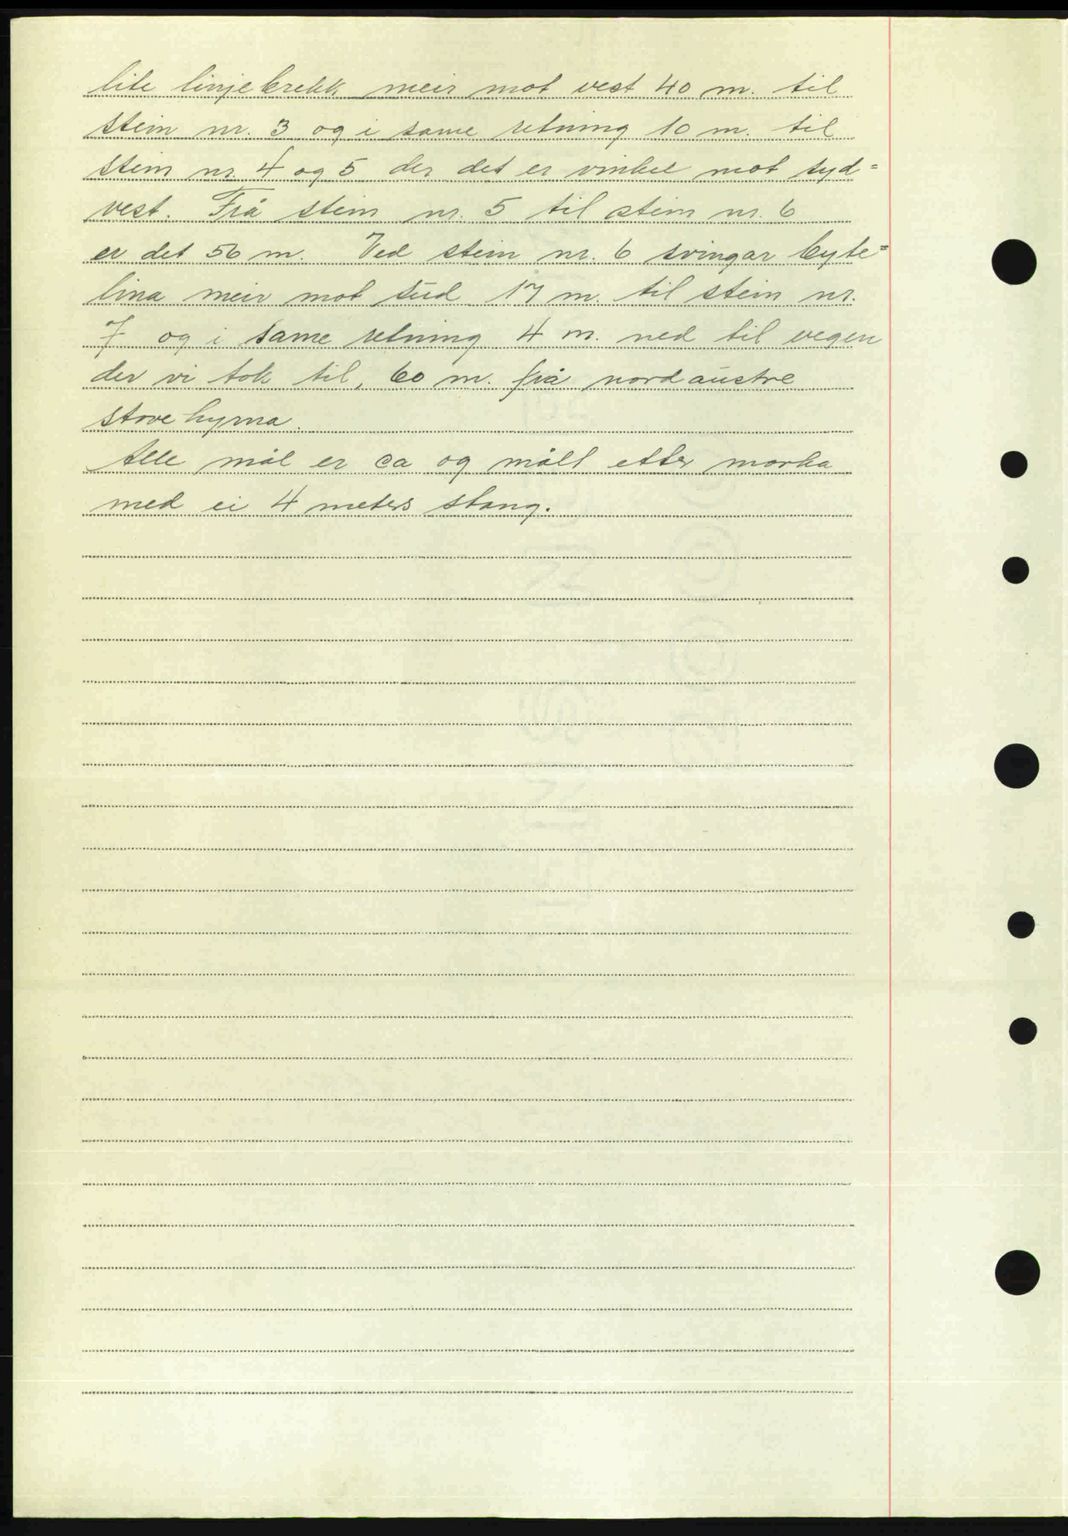 lite linjebrekk meir mot vest 40 m. til
stein nr. 3 og i same retning 10 m. til
stein nr 4 og 5 der det er vinkel mot syd=
vest. Frå stein nr. 5 til stein nr. 6
er det 56 m. Ved stein nr. 6 svingar byte=
lina meir mot süd 17 m. til stein nr.
7 og i same retning 4 m. ned til vegen
der vi tok til, 60 m. frå nordaustre
stovehyrna.
Alle mål er ca og målt etter marka
med ei 4 meters stang.